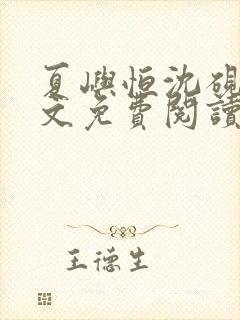 夏嶼恒沈硯
文免費閱讀
王德生